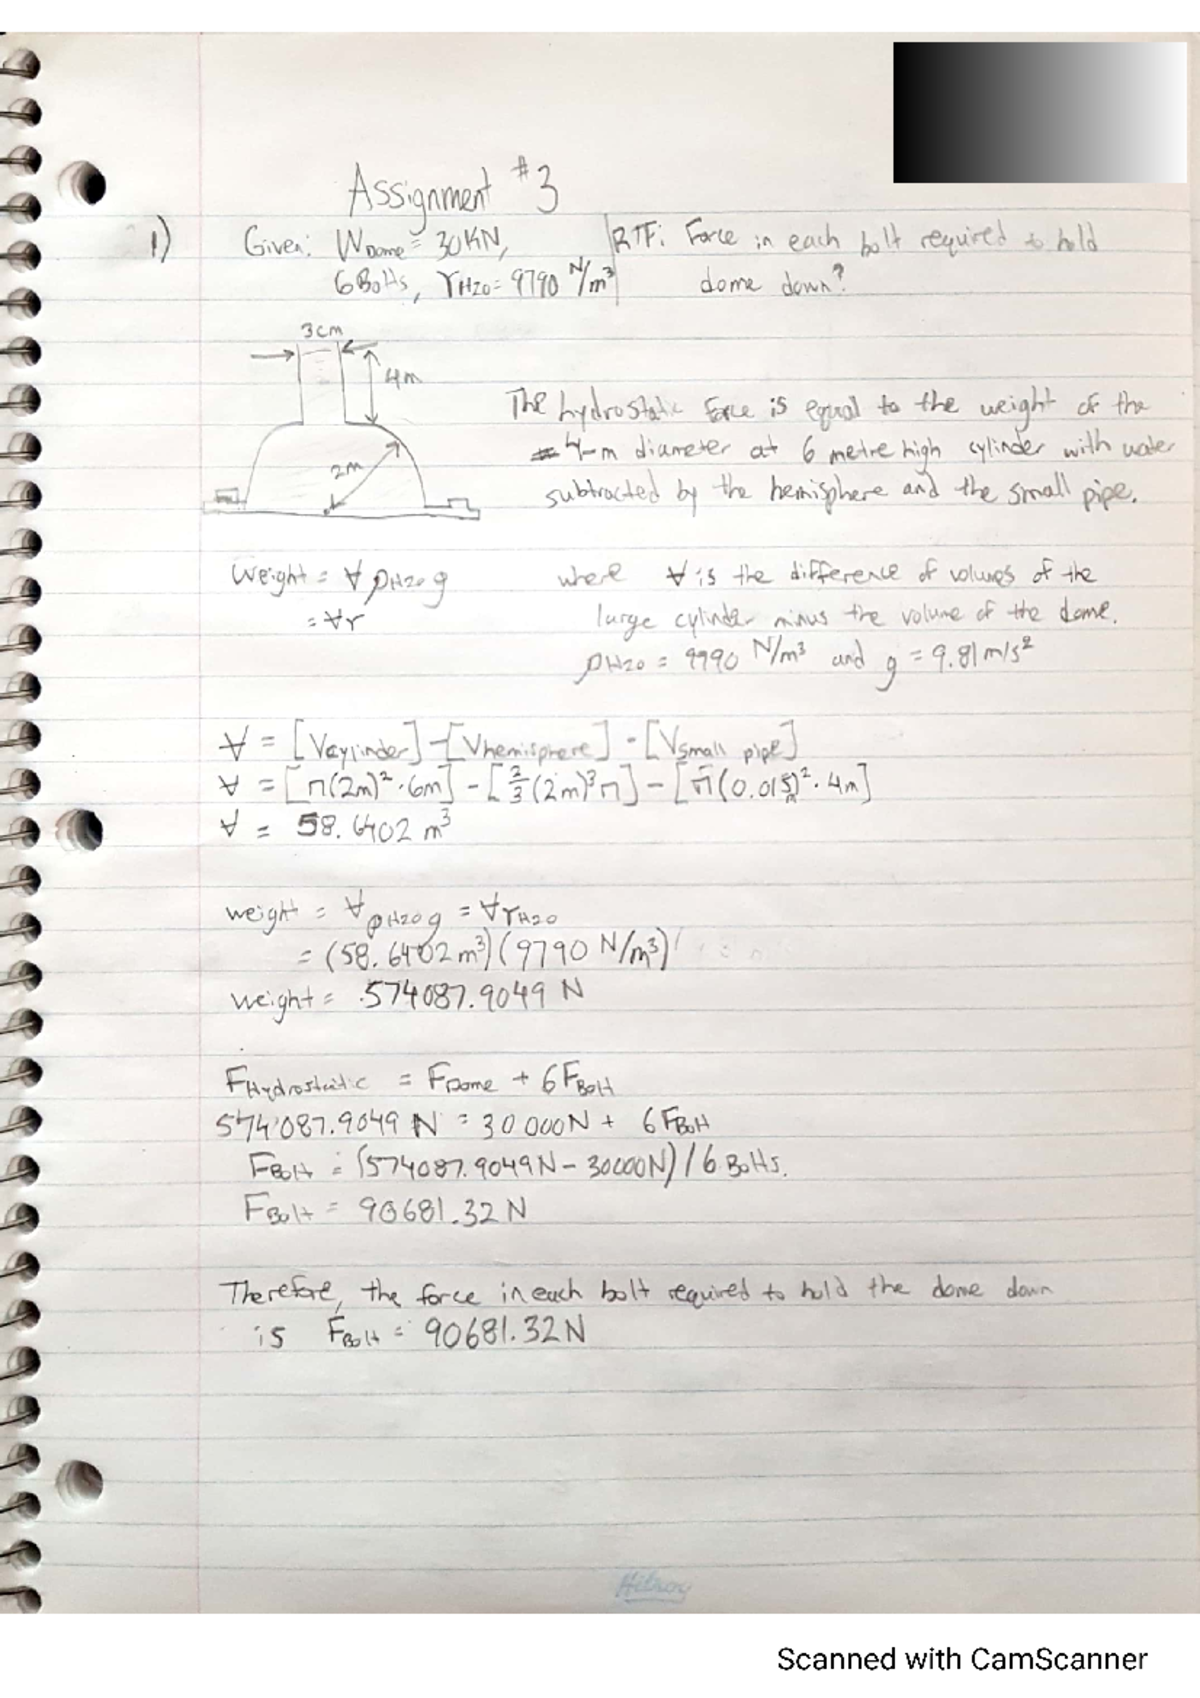 Assignment #3
1) Given: WDome = 30KN, RTF: Force in each bolt required to hold
6 Bolts, γH2O = 9790 N/m³ dome down?
3cm
4m
2m
The hydrostatic force is equal to the weight of the
4-m diameter at 6 metre high cylinder with water
subtracted by the hemisphere and the small pipe.
Weight = ∀ ρH2O g where ∀ is the difference of volumes of the
= ∀γ large cylinder minus the volume of the dome.
ρH2O = 9790 N/m³ and g = 9.81 m/s²
∀ = [Vcylinder] - [Vhemisphere] - [Vsmall pipe]
∀ = [π(2m)²·6m] - [2/3(2m)³π] - [π(0.015m)²·4m]
∀ = 58.6402 m³
weight = ∀ρH2O g = ∀γH2O
= (58.6402 m³)(9790 N/m³)
weight = 574087.9049 N
FHydrostatic = FDome + 6FBolt
574087.9049 N = 30 000N + 6FBolt
FBolt = (574087.9049N - 30000N) / 6 Bolts.
FBolt = 90681.32 N
Therefore, the force in each bolt required to hold the dome down
is FBolt = 90681.32 N
Hilroy
Scanned with CamScanner